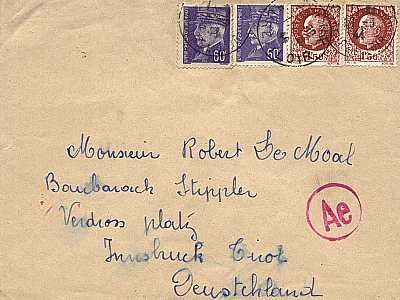 60 60 1F50 1F50
Monsieur Robert Le Moal
Baubarack Stippler
Verdross platz
Innsbruck Tirol
Deutschland
Ae